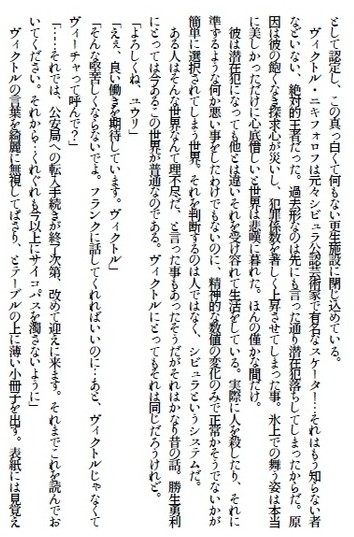 として認定し、この真っ白くて何もない更生施設に閉じ込めている。
ヴィクトル・ニキフォロフは元々シビュラ公認芸術家で有名なスケーター…それはもう知らない者
などいない、絶対的王者だった。過去形なのは先にも言った通り潜在犯落ちしてしまったからだ。原
因は彼の飽くなき探求心が災いし、犯罪係数を著しく上昇させてしまった事。氷上での舞う姿は本当
に美しかっただけに心底惜しいと世界は悲嘆に暮れた。ほんの僅かな間だけ。
彼は潜在犯になっても他とは違いそれを受け容れて生活をしている。実際に人を殺したり、それに
準ずるような何か悪い事をしたわけでもないのに、精神的な数値の変化のみで正常かそうでないかが
簡単に選択されてしまう世界。それを判断するのは人ではなく、シビュラというシステムだ。
ある人はそんな世界なんて理不尽だ、と言った事もあったそうだがそれはかなり昔の話。勝生勇利
にとっては今あるこの世界が普通なのである。ヴィクトルにとってもそれは同じだろうけれど。
「よろしくね、ユウリ」
「えぇ、良い働きを期待しています。ヴィクトル」
「そんな堅苦しくならないでよ。フランクに話してくれればいいのに…あと、ヴィクトルじゃなくて
ヴィーチャって呼んで？」
「……それでは、公安局への転入手続きが終了次第、改めて迎えに来ます。それまでこれを読んでお
いてください。それから…くれぐれも今以上にサイコパスを濁さないように」
ヴィクトルの言葉を綺麗に無視してばさり、とテーブルの上に薄い小冊子を出す。表紙には見覚え